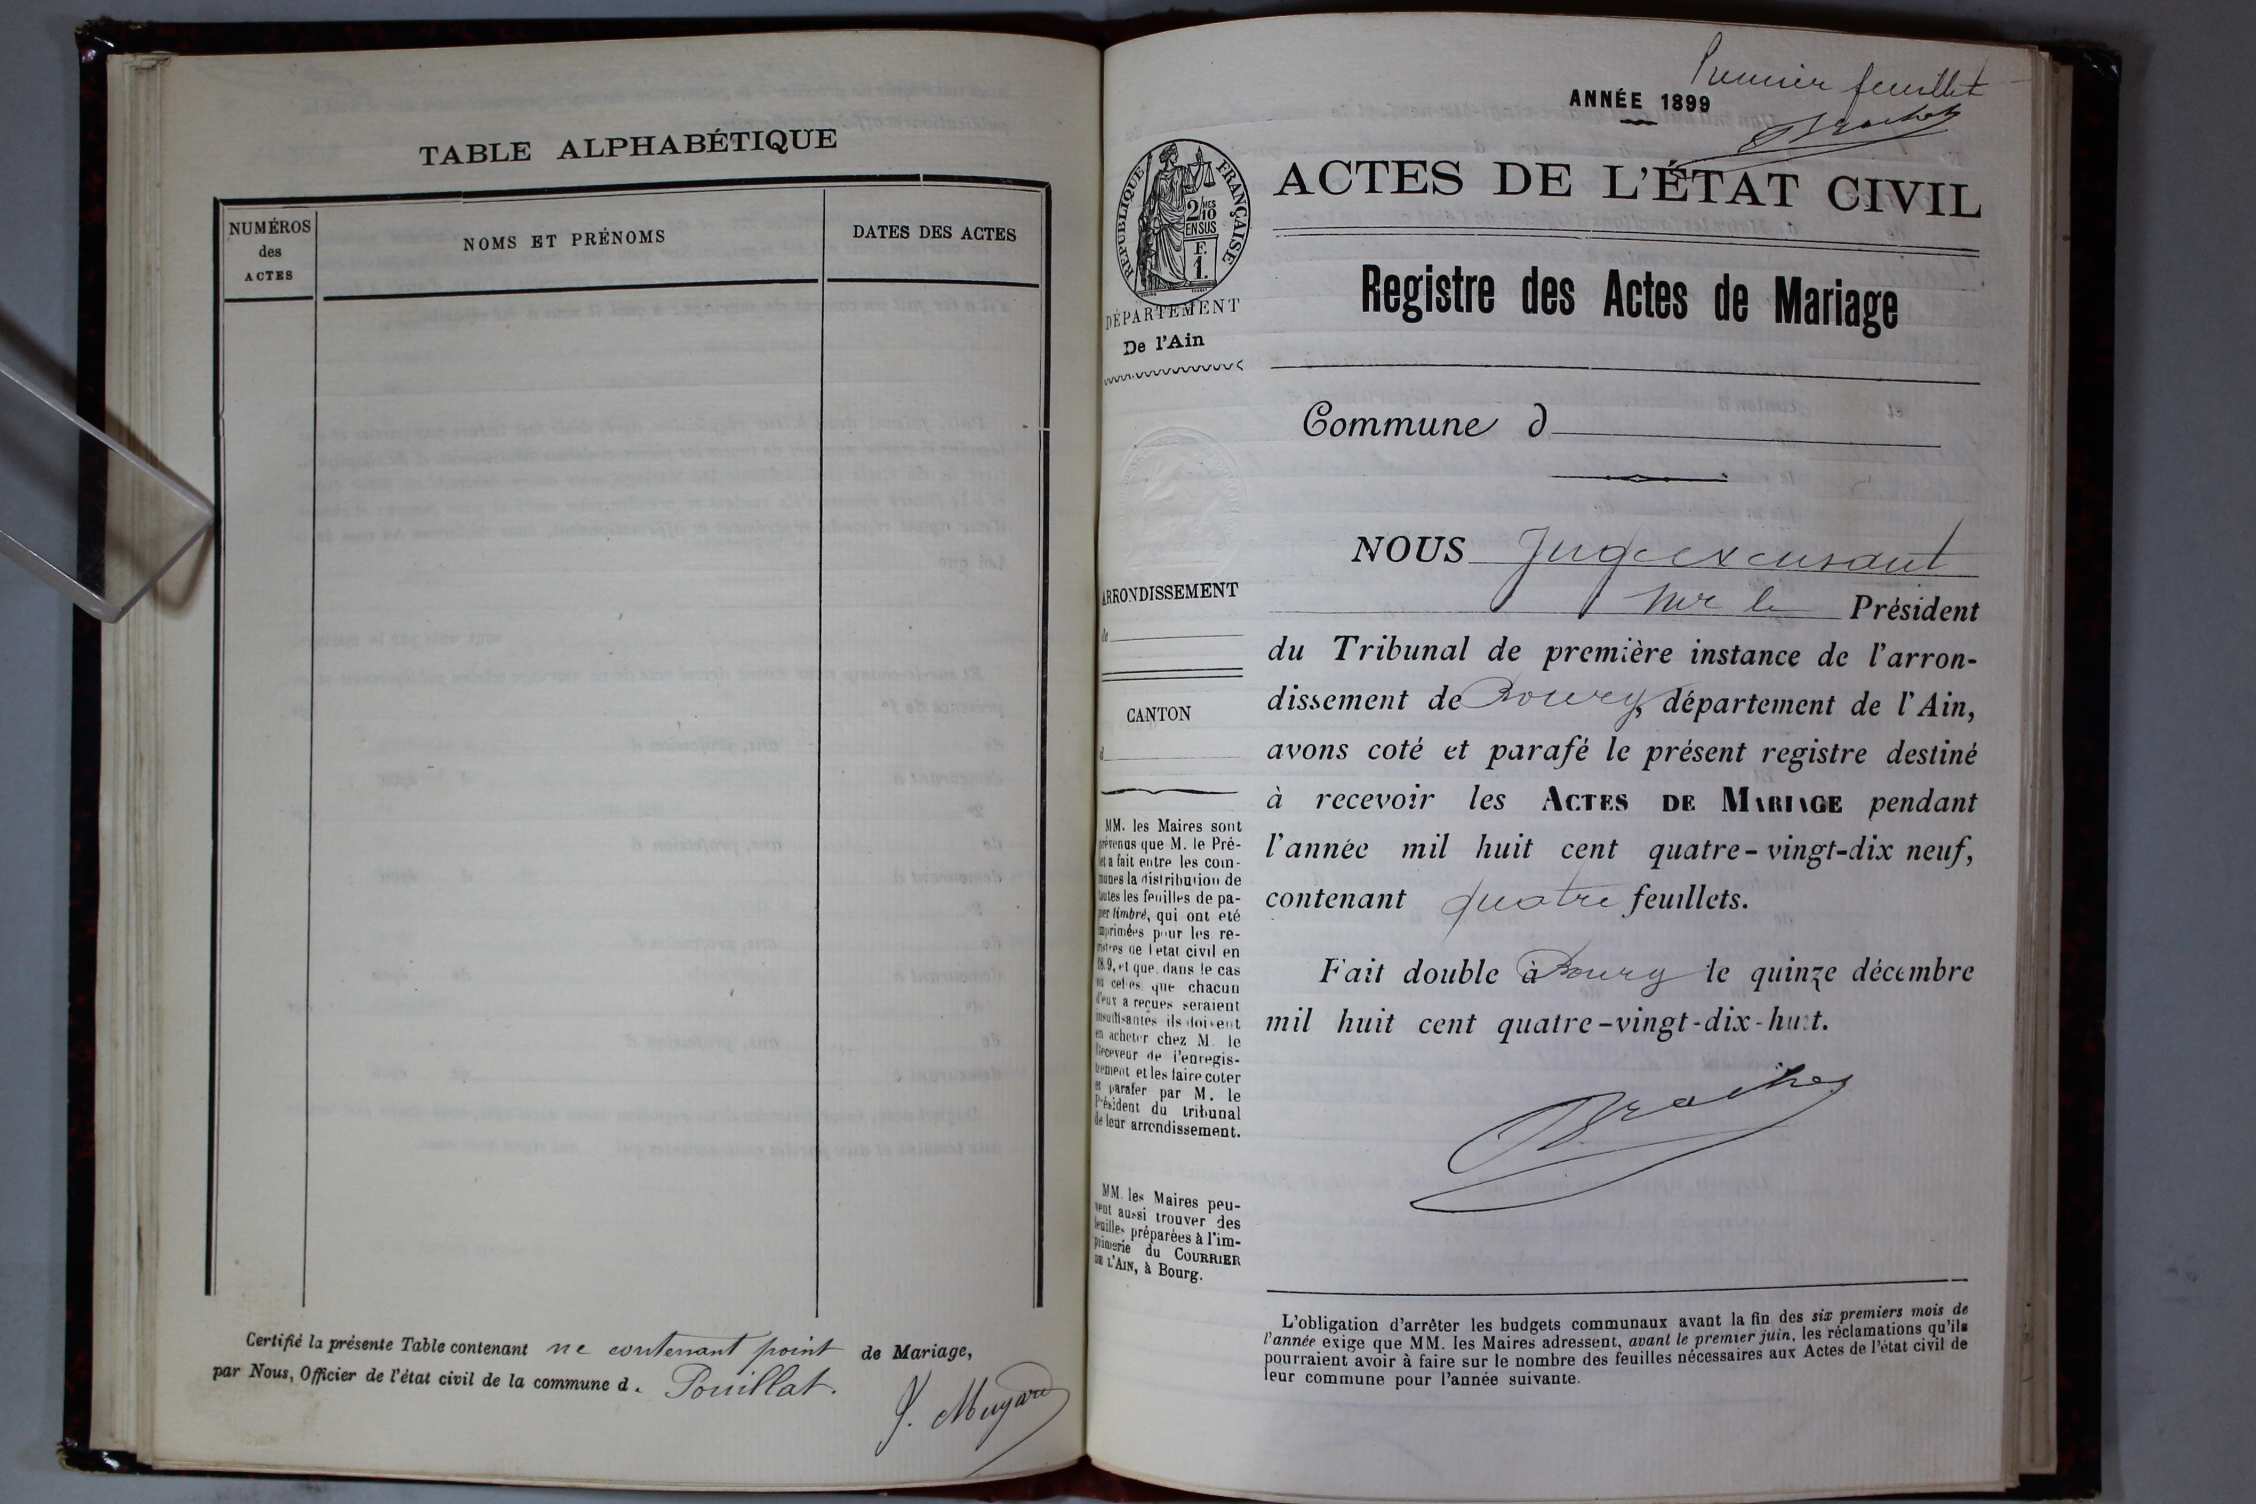 TABLE ALPHABÉTIQUE
NUMÉROS
des
ACTES
NOMS ET PRÉNOMS
DATES DES ACTES
Certifié la présente Table contenant ne contenant point de Mariage,
par Nous, Officier de l'état civil de la commune d. Pouillat.
Premier feuillet
ANNÉE 1899
RÉPUBLIQUE FRANÇAISE
2/10 MES
EN SUS
F.
1.
ACTES DE L'ÉTAT CIVIL
DÉPARTEMENT
De l'Ain
Registre des Actes de Mariage
Commune d
ARRONDISSEMENT
de
CANTON
d
MM. les Maires sont
prévenus que M. le Pré-
fet a fait entre les com-
munes la distribution de
toutes les feuilles de pa-
pier timbré, qui ont été
imprimées pour les re-
gistres de l'état civil en
1899, et que, dans le cas
où celles que chacun
d'eux a reçues seraient
insuffisantes ils doivent
en acheter chez M. le
Receveur de l'enregis-
trement et les faire coter
et parafer par M. le
Président du tribunal
de leur arrondissement.
MM. les Maires peu-
vent aussi trouver des
feuilles préparées à l'im-
primerie du COURRIER
DE L'AIN, à Bourg.
NOUS Juge
Mr le Président
du Tribunal de première instance de l'arron-
dissement de Bourg, département de l'Ain,
avons coté et parafé le présent registre destiné
à recevoir les ACTES DE MARIAGE pendant
l'année mil huit cent quatre-vingt-dix neuf,
contenant quatre feuillets.
Fait double à Bourg le quinze décembre
mil huit cent quatre-vingt-dix-huit.
L'obligation d'arrêter les budgets communaux avant la fin des six premiers mois de
l'année exige que MM. les Maires adressent, avant le premier juin, les réclamations qu'ils
pourraient avoir à faire sur le nombre des feuilles nécessaires aux Actes de l'état civil de
leur commune pour l'année suivante.